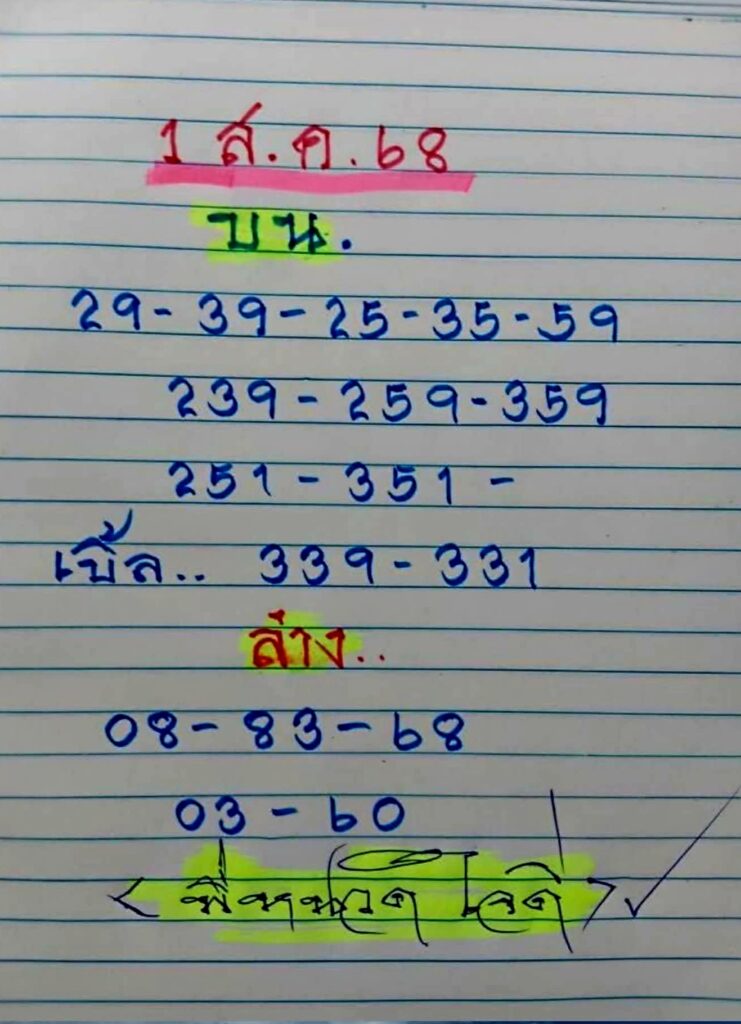 1 ส.ค.68
บน.
29-39-25-35-59
239-259-359
251-351-
เบิ้ล.. 339-331
ล่าง..
08-83-68
03-60